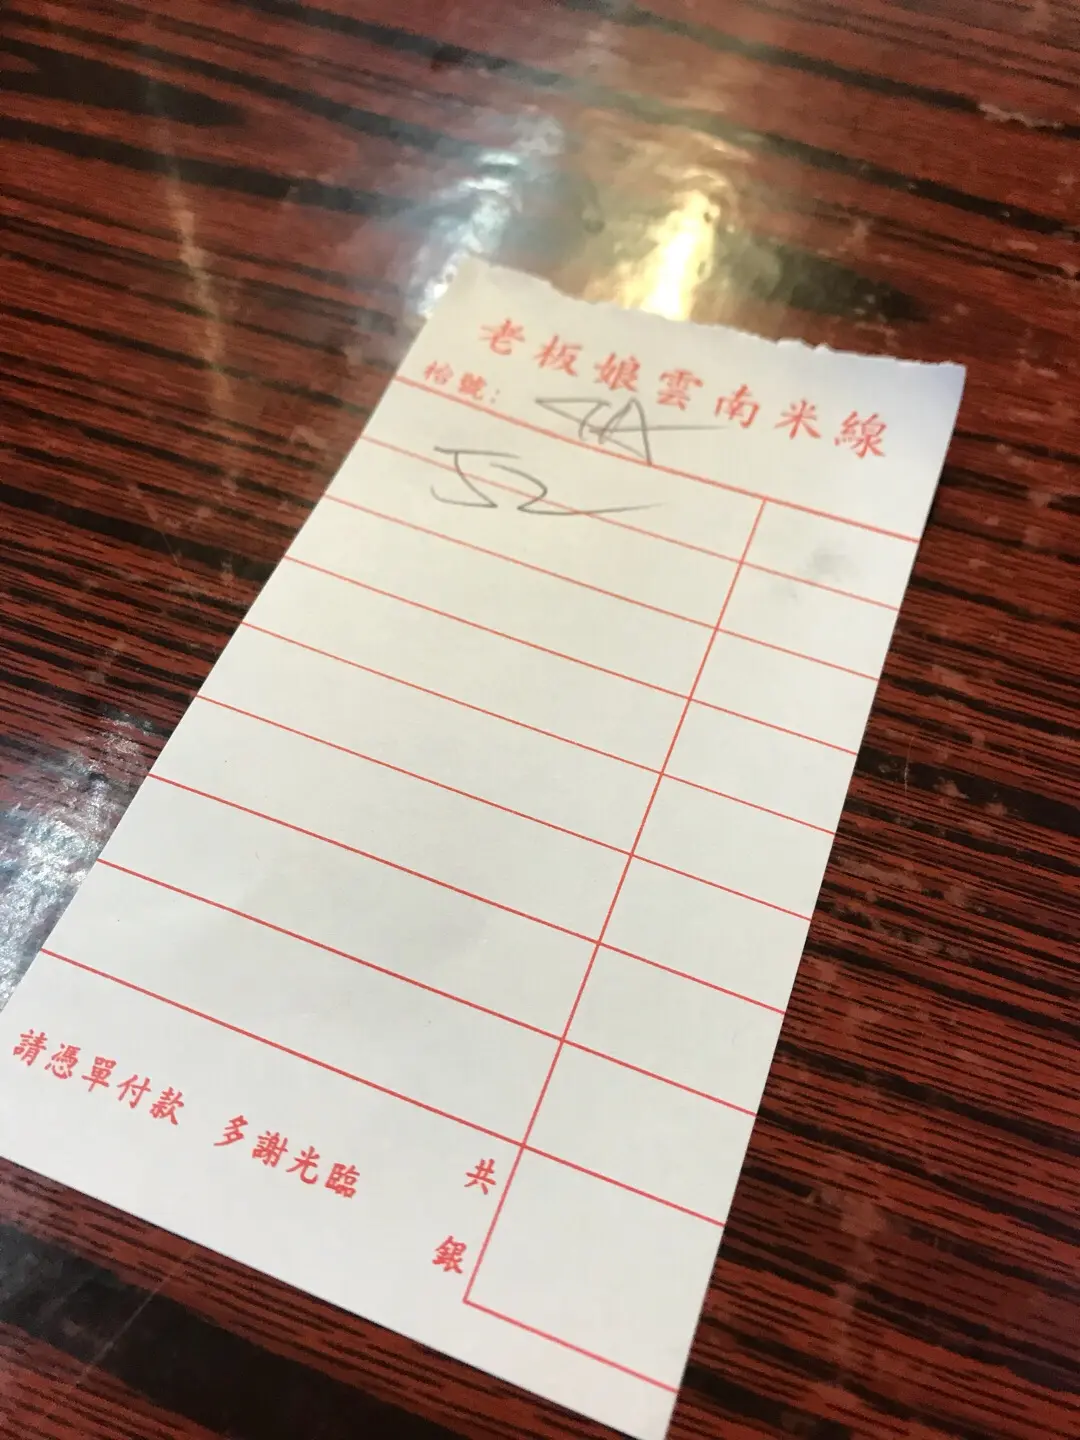 老板娘雲南米線
枱號:
52
請憑單付款 多謝光臨
共
銀